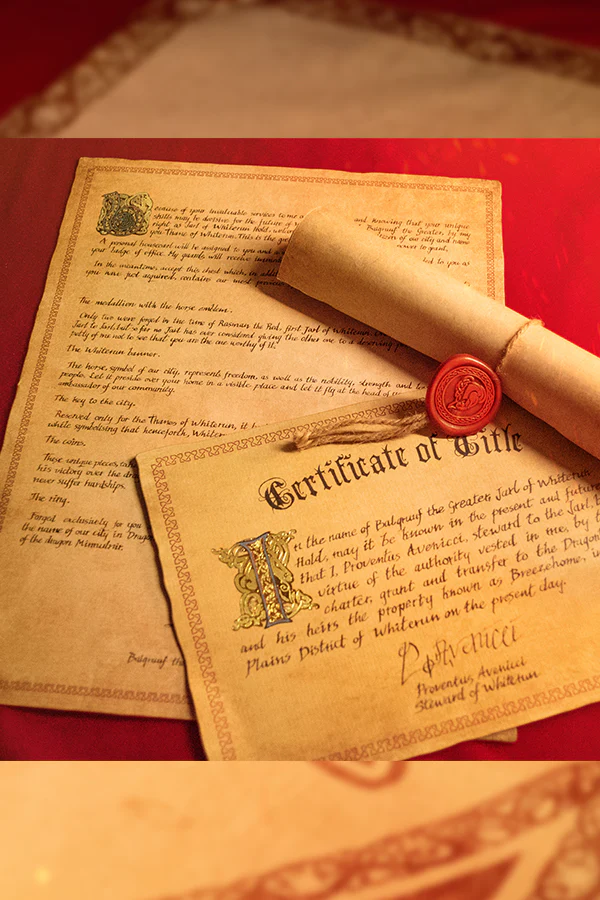 ecause of your invaluable services to me a and knowing that your unique
skills may be decisive for the future of Balgruuf the Greater, by my
right as Jarl of Whiterun Hold, of our city and name
you Thane of Whiterun. This is the
A personal housecarl will be assigned to you and
your badge of office. My guards will receive
In the meantime, accept this chest which, in addit
you have not acquired, contains our most
The medallion with the horse emblem.
Only two were forged in the time of the Red, first Jarl of Whiterun,
Jarl to Jarl, but so far no Jarl has ever considered giving the other one to a deserving
petty of me not to see that you are the one worthy of it.
The Whiterun banner.
The horse, symbol of our city, represents freedom, as well as the nobility, strength and
people. Let it preside over your home in a visible place and let it fly at the head of
ambassador of our community.
The key to the city.
Reserved only for the Thanes of Whiterun, it
while symbolising that henceforth, Whiter
The coins.
These unique pieces,
his victory over the
never suffer hardships.
The ring.
Forged exclusively for you
the name of our city in
of the dragon
Balgruuf the
Certificate of Title
In the name of Balgruuf the Greater, Jarl of Whiterun
Hold, may it be known in the present and future
that I, Proventus Avenicci, steward to the Jarl, by
virtue of the authority vested in me, by t
charter, grant and transfer to the Dragon
and his heirs the property known as Breezehome, in
Plains District of Whiterun on the present day.
P. Avenicci
Proventus Avenicci
Steward of Whiterun